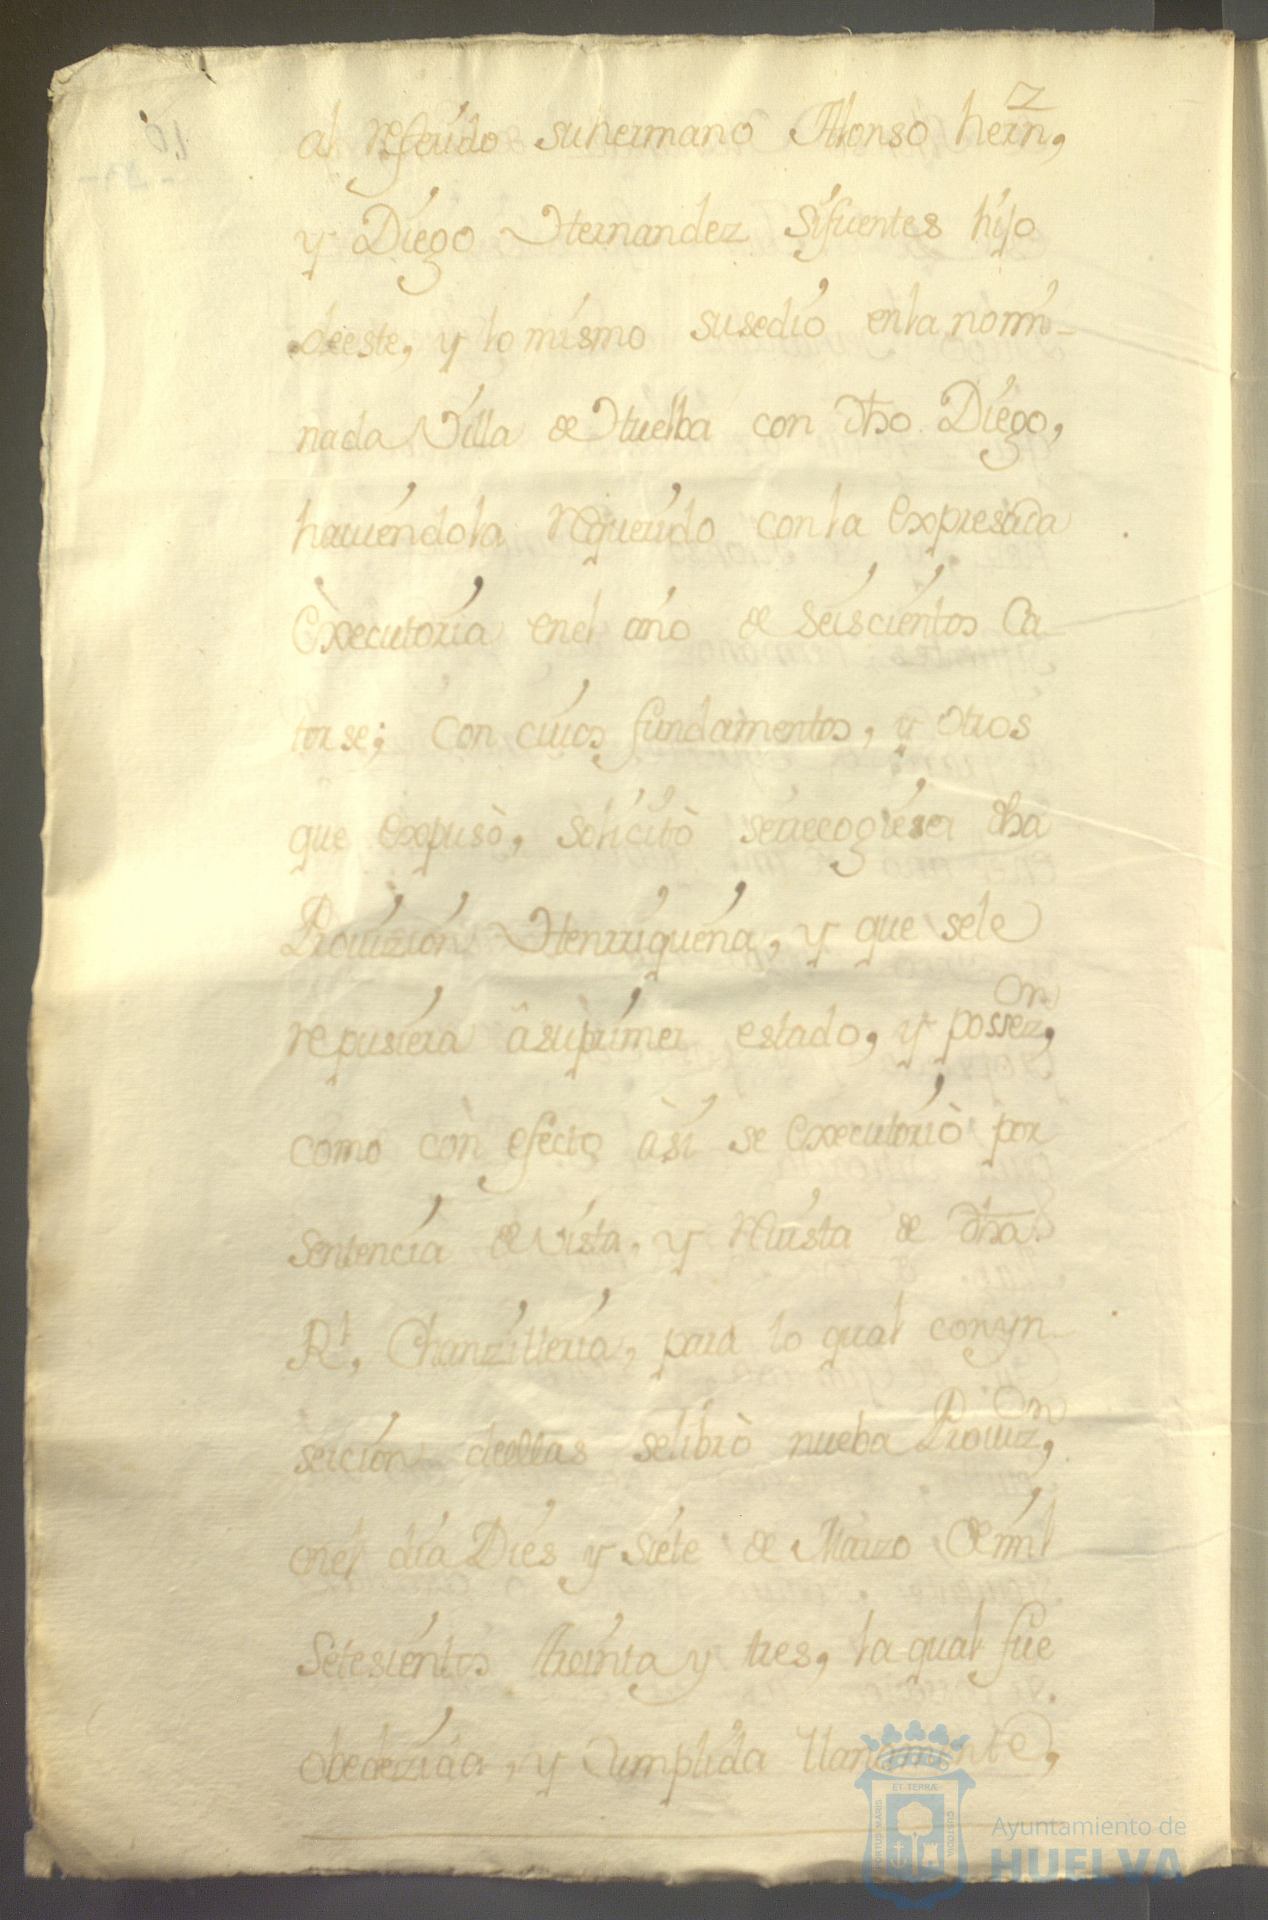 al referido su hermano Alonso hern,z
y Diego Hernandez Sifuentes hijo
de este, y lo mismo susedió en la nomi-
nada Villa de Huelba con dho Diego,
haviéndola requerido con la Expresada
Executoria en el año de Seiscientos Ca-
torse; Con cuios fundamentos, y otros
que expusò, Solicitò se recogiesen dha
Provizión Henriqueña, y que se le
repusiera â su primer estado, y possez,on
como con efecto àsi se executorió por
Sentencia de Vista, y Revista de dha
Rl, Chanzilleria, para lo qual con yn-
serción de ellas se librò nueba Proviz,on
en el día Dies y Siete de Marzo de mil
Setesientos treinta y tres, la qual fue
obedezida, y Cumplida llanamente,
Ayuntamiento de
HUELVA